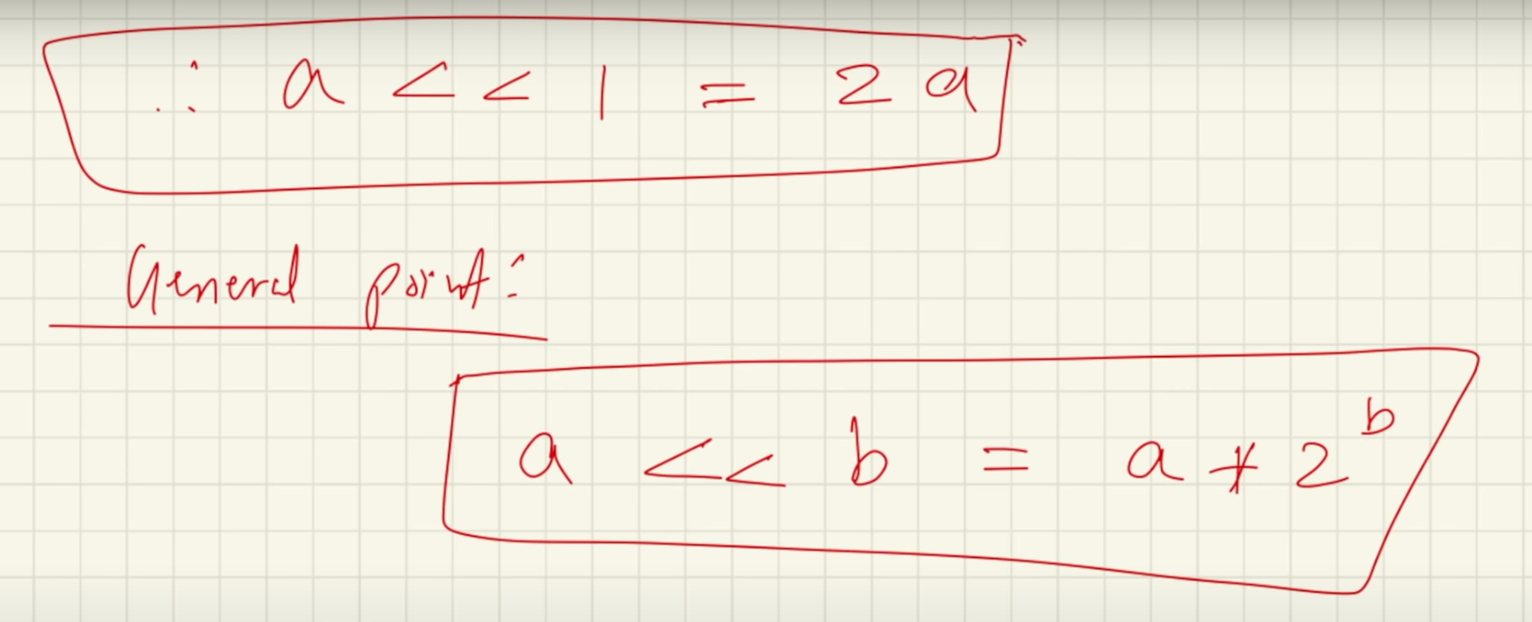 ∴ a << 1 = 2a
General point:
a << b = a * 2^b